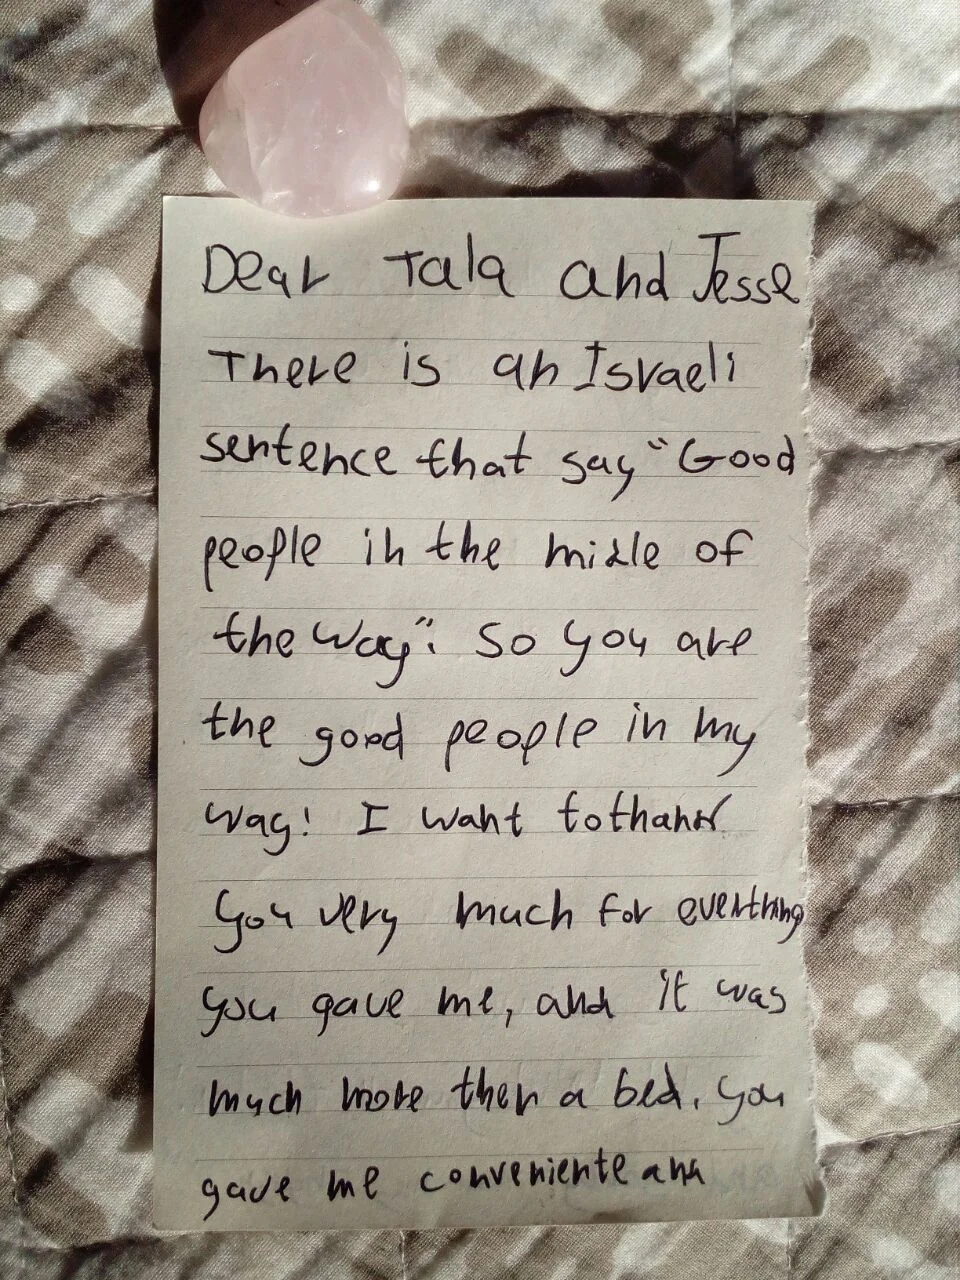 Dear Tala and Jesse
There is an Israeli
sentence that say "Good
people in the midle of
the way". So you are
the good people in my
way! I want to thank
you very much for everthing
you gave me, and it was
much more then a bed. you
gave me conveniente and